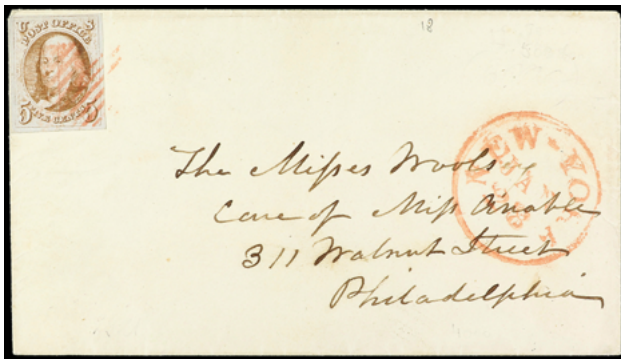 POST OFFICE
FIVE CENTS
5 5
18
NEW-YORK
JAN
The Misses Woolsey
Care of Miss Anable
311 Walnut Street
Philadelphia